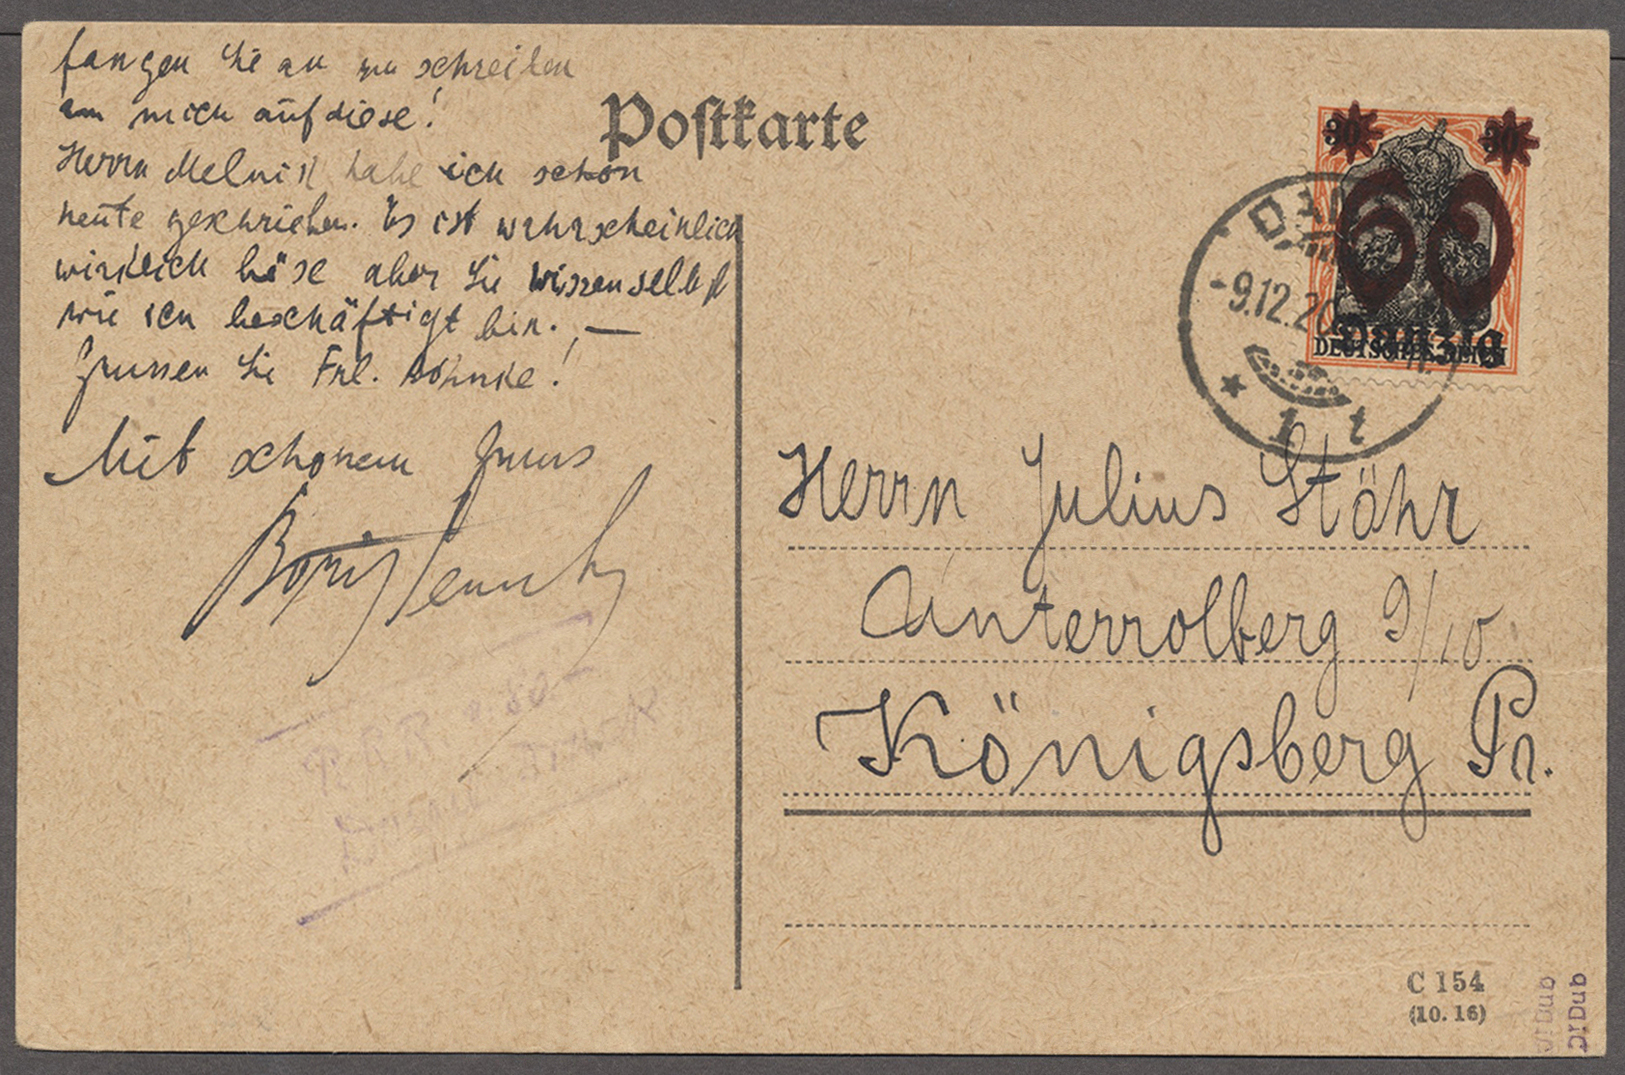 fangen Sie an zu schreiben
an mich auf diese!
Herrn Melnik habe ich schon
heute geschrieben. Es ist wahrscheinlich
wirklich böse aber Sie wissen selbst
wie ich beschäftigt bin. , —
Grussen Sie Frl. Böhnke!
Mit schonem Gruss
Boris
Postkarte
30 30
60
Danzig
DEUTSCHES REICH
DAN
-9.12.20
* 1 t
Herrn Julius Stöhr
Unterrolberg 9/10
Königsberg Pr.
C 154
(10. 16)